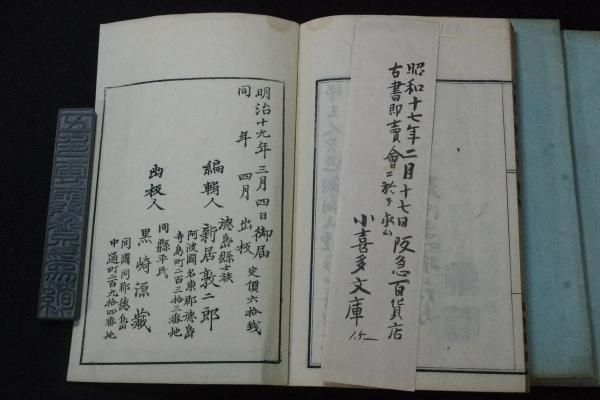 昭和十七年二月十七日阪急百貨店
古書即賣會ニ於テ求ム
小喜多文庫
明治十九年三月四日御届
同年四月出板
定價六拾銭
德島縣士族
編輯人 新居敦二郎
阿波國名東郡德島
寺島町二百三拾三番地
同縣平民
出板人 黒崎源藏
同國同郡德島
中通町二百九拾四番地